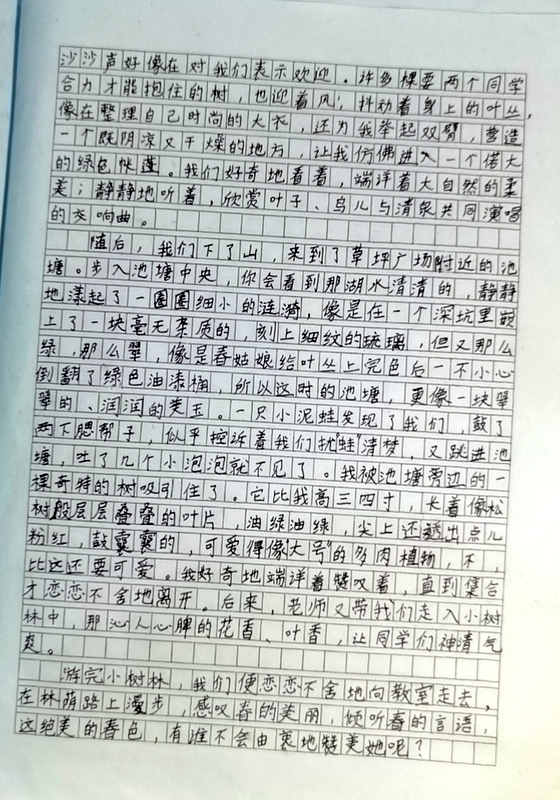 沙沙声好像在对我们表示欢迎。许多棵要两个同学
合力才能抱住的树，也迎着风，抖动着身上的叶丛，
像在整理自己时尚的大衣，还为我举起双臂，营造
一个既阴凉又干燥的地方，让我仿佛进入一个偌大
的绿色帐蓬。我们好奇地看着，端详着大自然的柔
美；静静地听着，欣赏叶子、鸟儿与清泉共同演唱
的交响曲。
随后，我们下了山，来到了草坪广场附近的池
塘。步入池塘中央，你会看到那湖水清清的，静静
地漾起了一圈圈细小的涟漪，像是在一个深坑里
上了一块毫无杂质的，刻上细纹的琉璃，但又那么
绿，那么翠，像是春姑娘给叶丛上完色后一不小心
倒翻了绿色油漆桶，所以这时的池塘，更像一块翠
翠的、润润的美玉。一只小泥蛙发现了我们，鼓了
两下腮帮子，似乎控诉着我们扰"蛙"清梦，又跳进池
塘，吐了几个小泡泡就不见了。我被池塘旁边的一
棵奇特的树吸引住了。它比我高三四寸，长着像松
树般层层叠叠的叶片，油绿油绿，尖上还透出点儿
粉红，鼓囊囊的，可爱得像"大号"的多肉植物，不，
比这还要可爱。我好奇地端详着赞叹着，直到集合
才恋恋不舍地离开。后来，老师又带我们走入小树
林中，那沁人心脾的花香、叶香，让同学们神清气
爽。
游完小树林，我们便恋恋不舍地向教室走去，
在林荫路上漫步，感叹春的美丽，倾听春的言语，
这绝美的春色，有谁不会由衷地赞美她呢？